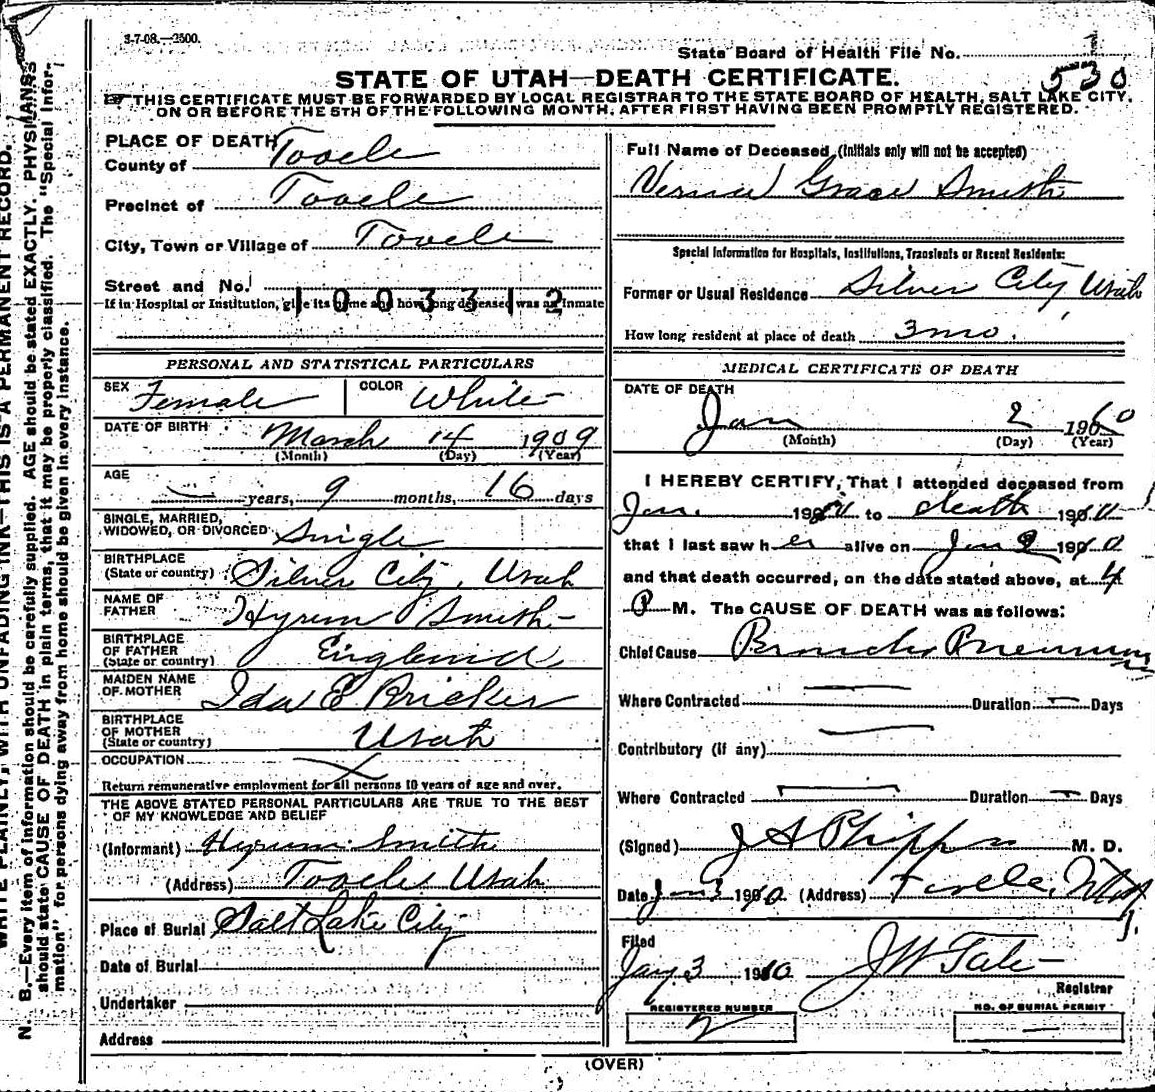 3-7-08.—2500.
State Board of Health File No. 1
530
STATE OF UTAH—DEATH CERTIFICATE.
THIS CERTIFICATE MUST BE FORWARDED BY LOCAL REGISTRAR TO THE STATE BOARD OF HEALTH, SALT LAKE CITY,
ON OR BEFORE THE 5TH OF THE FOLLOWING MONTH, AFTER FIRST HAVING BEEN PROMPTLY REGISTERED.
PLACE OF DEATH
County of Tooele
Precinct of Tooele
City, Town or Village of Tooele
Street and No.
1003312
If in Hospital or Institution, give its name and how long deceased was an Inmate
PERSONAL AND STATISTICAL PARTICULARS
SEX Female COLOR White
DATE OF BIRTH March 14 1909
(Month) (Day) (Year)
AGE — years, 9 months, 16 days
SINGLE, MARRIED,
WIDOWED, OR DIVORCED Single
BIRTHPLACE
(State or country) Silver City, Utah
NAME OF
FATHER Hyrum Smith
BIRTHPLACE
OF FATHER
(State or country) England
MAIDEN NAME
OF MOTHER Ida E Bricker
BIRTHPLACE
OF MOTHER
(State or country) Utah
OCCUPATION
Return remunerative employment for all persons 10 years of age and over.
THE ABOVE STATED PERSONAL PARTICULARS ARE TRUE TO THE BEST
OF MY KNOWLEDGE AND BELIEF
(Informant) Hyrum Smith
(Address) Tooele Utah
Place of Burial Salt Lake City
Date of Burial
Undertaker
Address
Full Name of Deceased (Initials only will not be accepted)
Grace Smith
Special Information for Hospitals, Institutions, Transients or Recent Residents:
Former or Usual Residence Silver City, Utah
How long resident at place of death 3 mo.
MEDICAL CERTIFICATE OF DEATH
DATE OF DEATH
Jan 2 1910
(Month) (Day) (Year)
I HEREBY CERTIFY, That I attended deceased from
Jan. 1910 to death 1910
that I last saw her alive on Jan 2 1910
and that death occurred, on the date stated above, at 4
P M. The CAUSE OF DEATH was as follows:
Chief Cause Broncho Pneumonia
Where Contracted — Duration — Days
Contributory (if any) —
Where Contracted — Duration — Days
(Signed) J A Phipps M. D.
Date Jan 3 1910. (Address) Tooele, Utah
Filed
Jany 3 1910 J W Tate
Registrar
REGISTERED NUMBER
2
NO. OF BURIAL PERMIT
—
(OVER)
WRITE PLAINLY, WITH UNFADING INK—THIS IS A PERMANENT RECORD.
N. B.—Every item of information should be carefully supplied. AGE should be stated EXACTLY. PHYSICIANS
should state CAUSE OF DEATH in plain terms, that it may be properly classified. The "Special Infor-
mation" for persons dying away from home should be given in every instance.